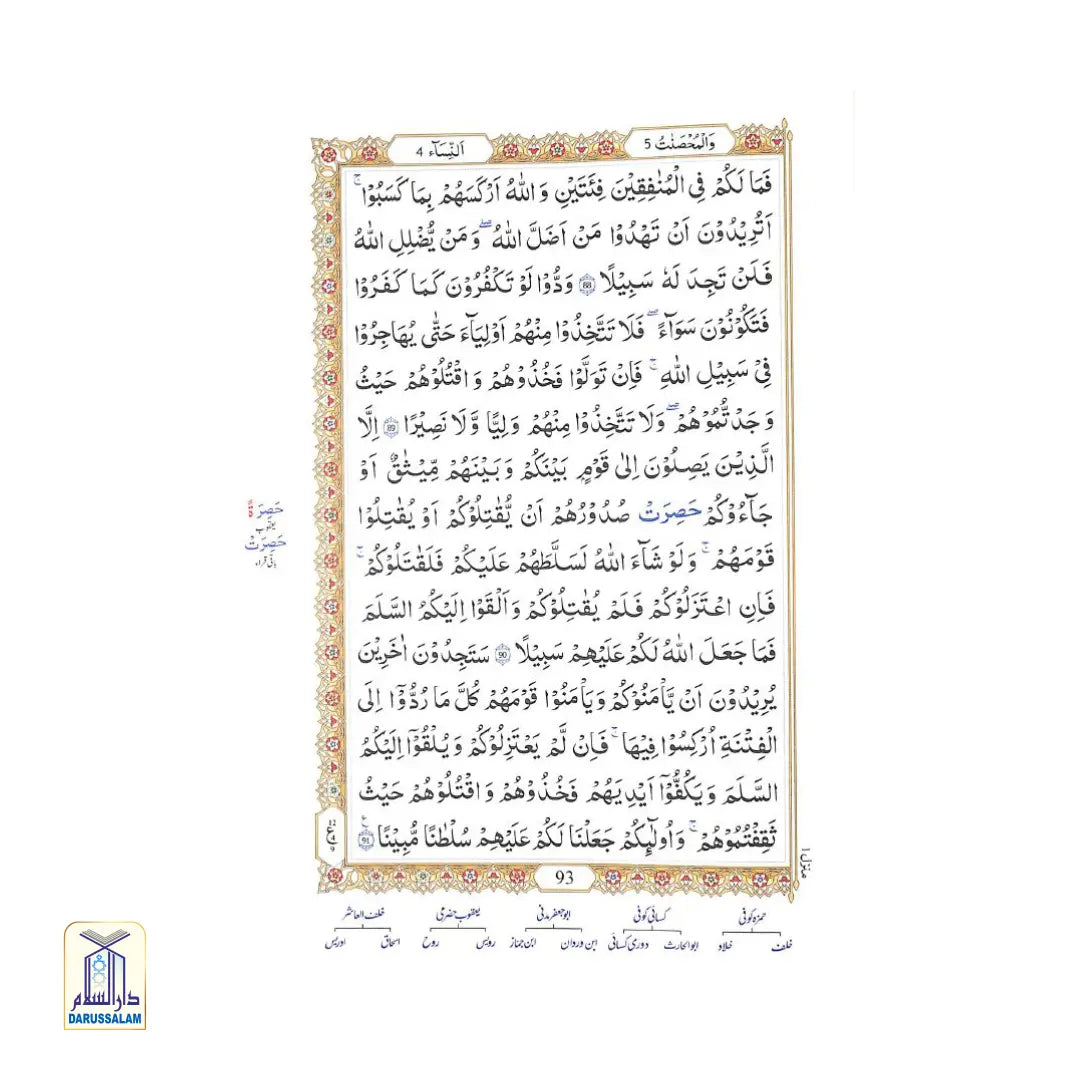 وَالْمُحْصَنٰتُ 5
اَلنِّسَآء 4
فَمَا لَكُمْ فِى الْمُنٰفِقِيْنَ فِئَتَيْنِ وَاللّٰهُ اَرْكَسَهُمْ بِمَا كَسَبُوْا ۚ
اَتُرِيْدُوْنَ اَنْ تَهْدُوْا مَنْ اَضَلَّ اللّٰهُ ۖ وَمَنْ يُّضْلِلِ اللّٰهُ
فَلَنْ تَجِدَ لَهٗ سَبِيْلًا 88 وَدُّوْا لَوْ تَكْفُرُوْنَ كَمَا كَفَرُوْا
فَتَكُوْنُوْنَ سَوَآءً ۖ فَلَا تَتَّخِذُوْا مِنْهُمْ اَوْلِيَآءَ حَتّٰى يُهَاجِرُوْا
فِىْ سَبِيْلِ اللّٰهِ ۚ فَاِنْ تَوَلَّوْا فَخُذُوْهُمْ وَاقْتُلُوْهُمْ حَيْثُ
وَجَدْتُّمُوْهُمْ ۖ وَلَا تَتَّخِذُوْا مِنْهُمْ وَلِيًّا وَّلَا نَصِيْرًا 89 اِلَّا
الَّذِيْنَ يَصِلُوْنَ اِلٰى قَوْمٍۭ بَيْنَكُمْ وَبَيْنَهُمْ مِّيْثٰقٌ اَوْ
جَآءُوْكُمْ حَصِرَتْ صُدُوْرُهُمْ اَنْ يُّقٰتِلُوْكُمْ اَوْ يُقٰتِلُوْا
قَوْمَهُمْ ۚ وَلَوْ شَآءَ اللّٰهُ لَسَلَّطَهُمْ عَلَيْكُمْ فَلَقٰتَلُوْكُمْ ۚ
فَاِنِ اعْتَزَلُوْكُمْ فَلَمْ يُقٰتِلُوْكُمْ وَاَلْقَوْا اِلَيْكُمُ السَّلَمَ
فَمَا جَعَلَ اللّٰهُ لَكُمْ عَلَيْهِمْ سَبِيْلًا 90 سَتَجِدُوْنَ اٰخَرِيْنَ
يُرِيْدُوْنَ اَنْ يَّاْمَنُوْكُمْ وَيَاْمَنُوْا قَوْمَهُمْ كُلَّ مَا رُدُّوْٓا اِلَى
الْفِتْنَةِ اُرْكِسُوْا فِيْهَا ۚ فَاِنْ لَّمْ يَعْتَزِلُوْكُمْ وَيُلْقُوْٓا اِلَيْكُمُ
السَّلَمَ وَيَكُفُّوْٓا اَيْدِيَهُمْ فَخُذُوْهُمْ وَاقْتُلُوْهُمْ حَيْثُ
ثَقِفْتُمُوْهُمْ ۚ وَاُولٰٓئِكُمْ جَعَلْنَا لَكُمْ عَلَيْهِمْ سُلْطٰنًا مُّبِيْنًا 91
حَصِرَةً
یعقوب
حَصِرَتْ
باقی قراء
منزل ۱
93
حمزہ کوفی
خلف خلاد
کسائی کوفی
ابوالحارث دوری کسائی
ابوجعفر مدنی
ابن وردان ابن جماز
یعقوب حضرمی
رویس روح
خلف العاشر
اسحاق ادریس
دار السلام
DARUSSALAM